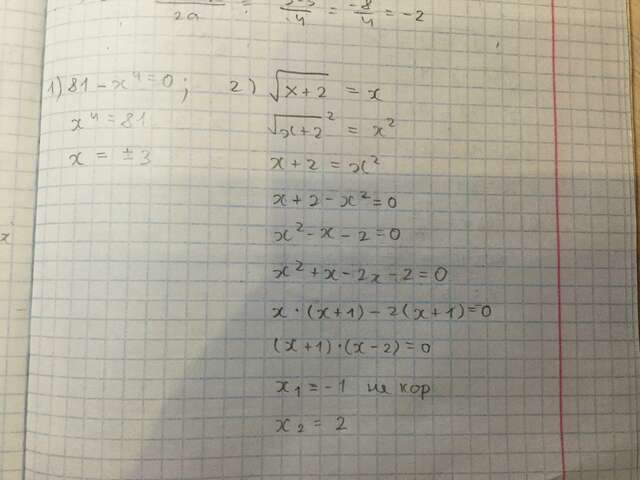 2a = = -8/4 = -2
1) 81 - x⁴ = 0;
x⁴ = 81
x = ±3
2) √(x+2) = x
√(x+2)² = x²
x + 2 = x²
x + 2 - x² = 0
x² - x - 2 = 0
x² + x - 2x - 2 = 0
x · (x+1) - 2(x+1) = 0
(x+1) · (x-2) = 0
x₁ = -1 не кор
x₂ = 2
x